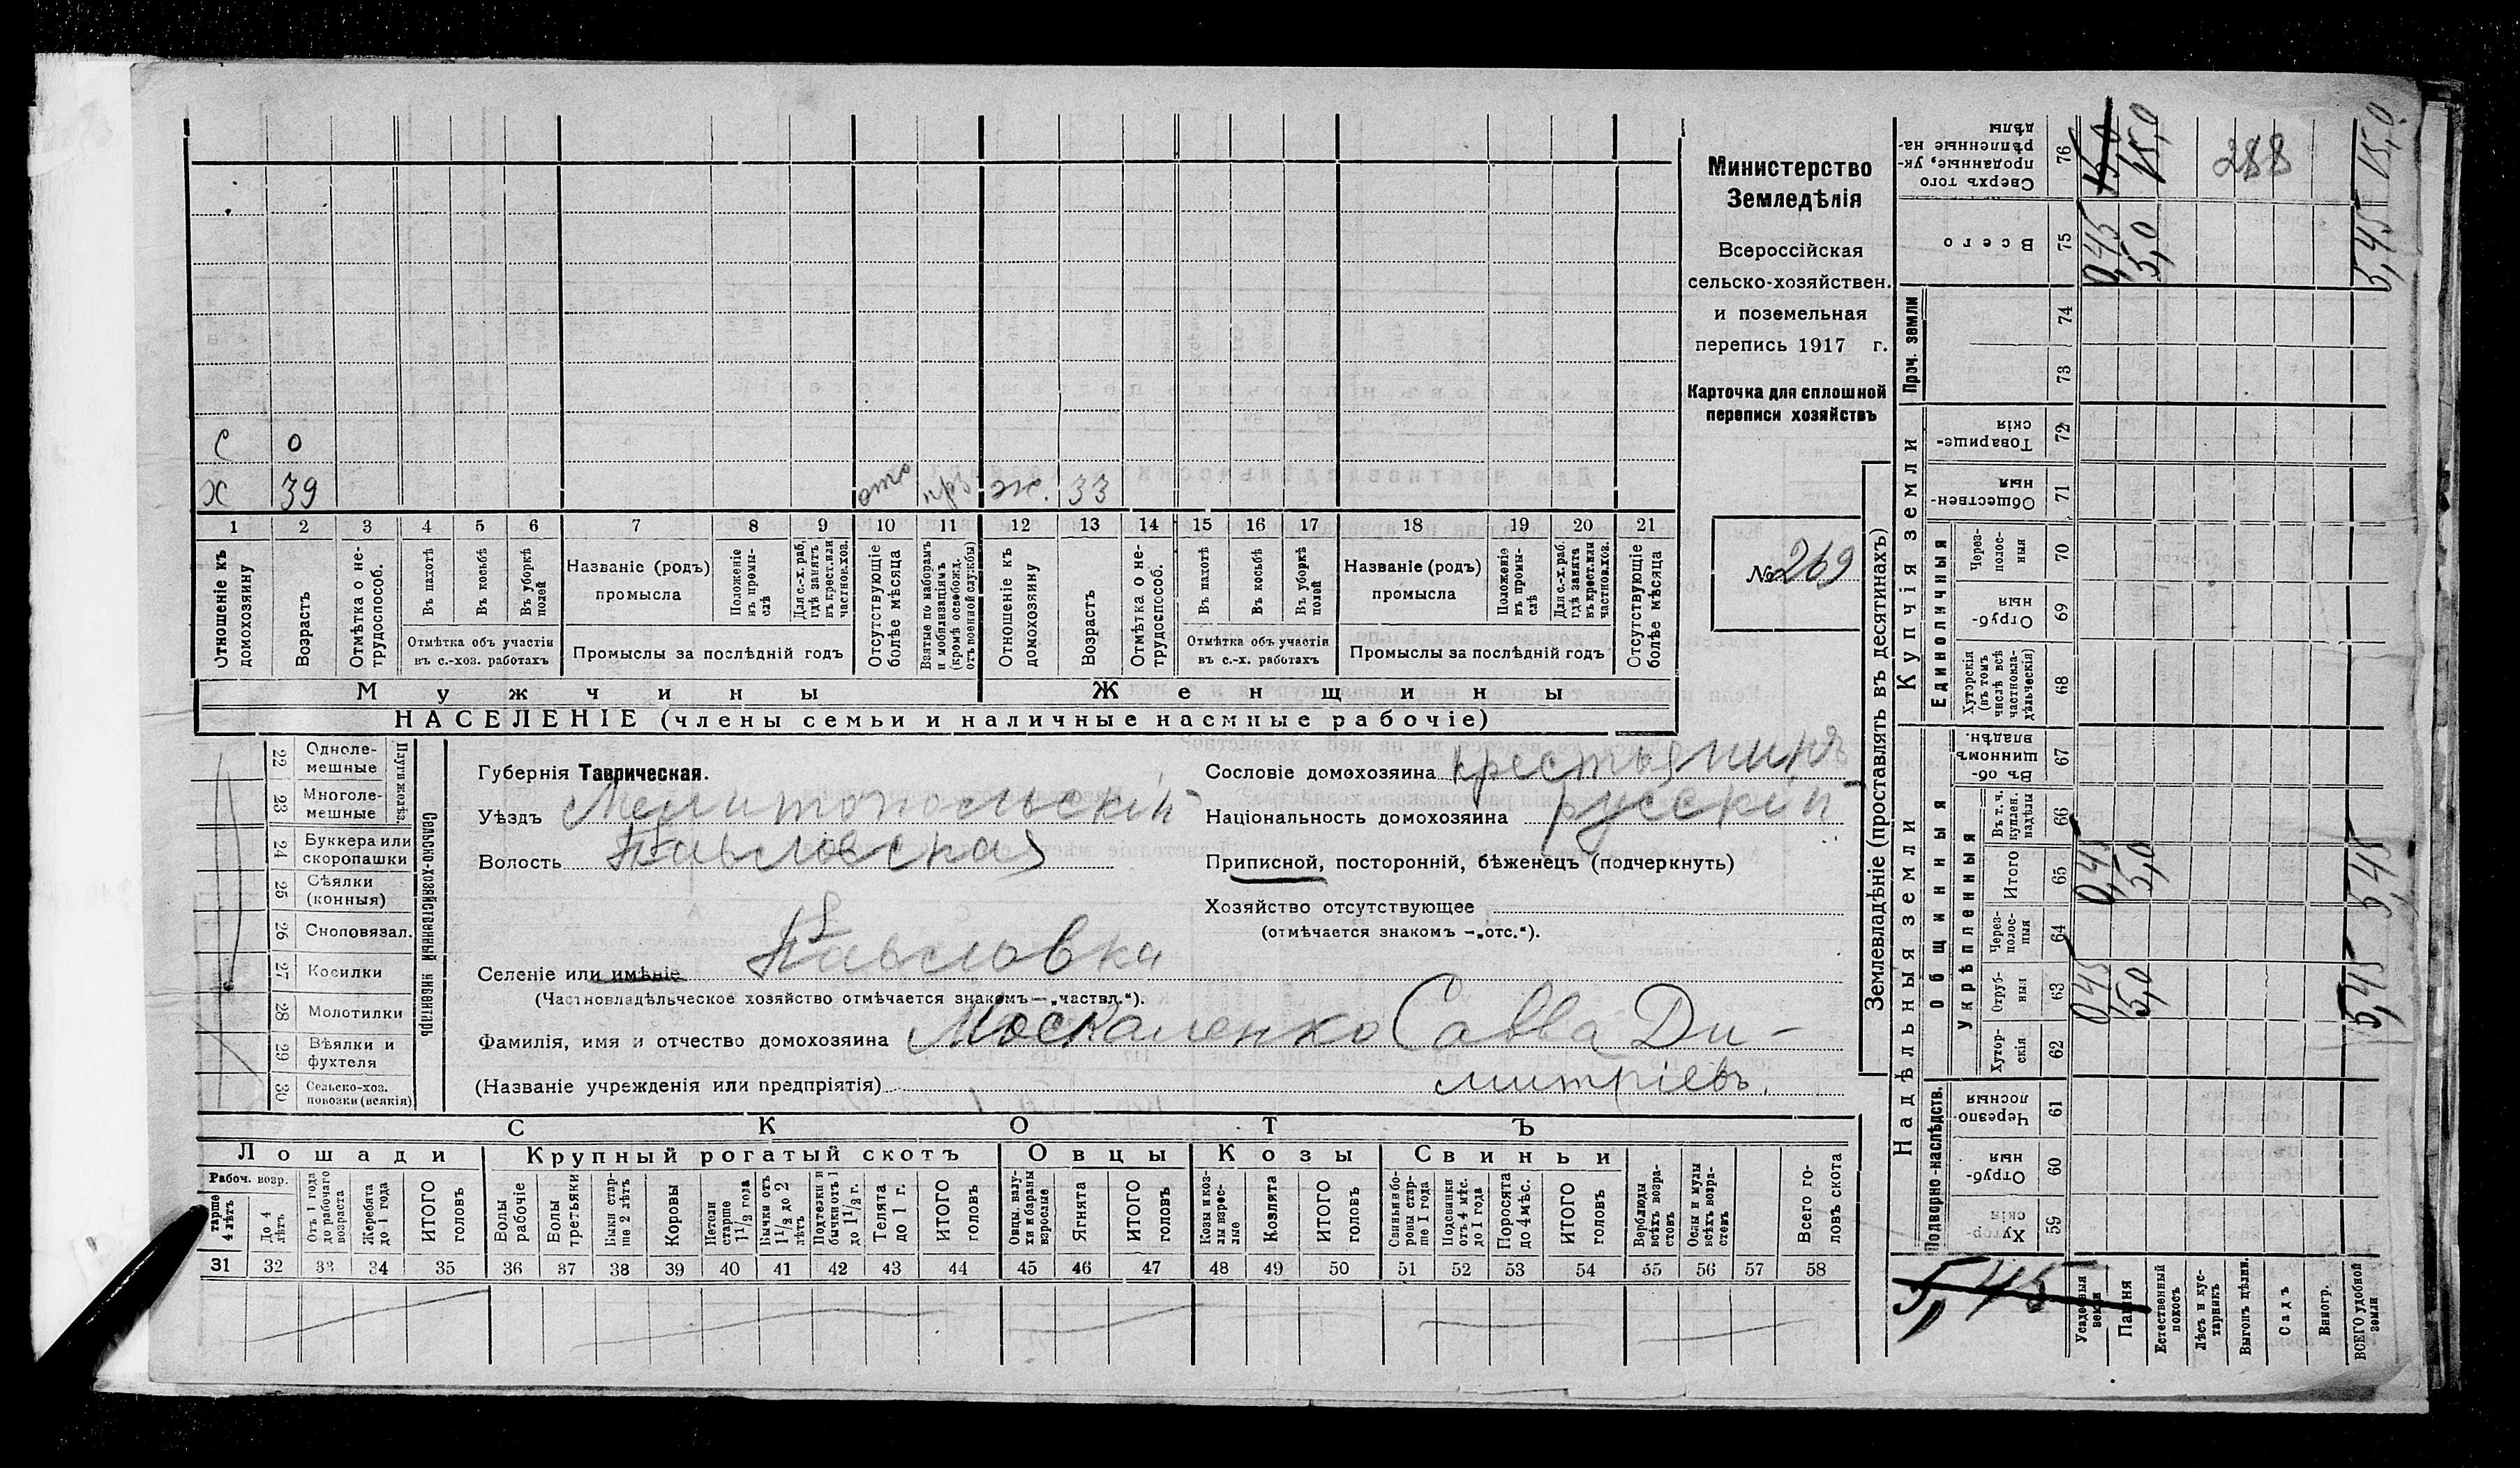 Министерство
Земледѣлія
Всероссійская
сельско-хозяйствен.
и поземельная
перепись 1917 г.
Карточка для сплошной
переписи хозяйствъ
№ 269
с 0
х 39 отс пр. ж. 33
1 2 3 4 5 6 7 8 9 10 11 12 13 14 15 16 17 18 19 20 21
Отношеніе къ домохозяину
Возрастъ
Отмѣтка о не-трудоспособ.
Въ пахотѣ
Въ косьбѣ
Въ уборкѣ полей
Отмѣтка объ участіи
въ с.-хоз. работахъ
Названіе (родъ)
промысла
Положеніе въ промы-слѣ
Для с.-х. раб. гдѣ занятъ въ крест. или частнов. хоз.
Промыслы за послѣдній годъ
Отсутствующіе болѣе мѣсяца
Взятые по наборамъ и мобилизаціямъ (кромѣ освобожд. отъ военной службы)
Отношеніе къ домохозяину
Возрастъ
Отмѣтка о не-трудоспособ.
Въ пахотѣ
Въ косьбѣ
Въ уборкѣ полей
Отмѣтка объ участіи
въ с.-х. работахъ
Названіе (родъ)
промысла
Положеніе въ промы-слѣ
Для с.-х. раб. гдѣ занята въ крест. или частнов. хоз.
Промыслы за послѣдній годъ
Отсутствующіе болѣе мѣсяца
Мужчины Женщины
НАСЕЛЕНІЕ (члены семьи и наличные наемные рабочіе)
Сельско-хозяйственный инвентарь
Плуги желѣз.
22 Одноле-мешные
23 Многоле-мешные
24 Буккера или скоропашки
25 Сѣялки (конныя)
26 Сноповязал.
27 Косилки
28 Молотилки
29 Вѣялки и фухтеля
30 Сельско-хоз. повозки (всякія)
Губернія Таврическая.
Уѣздъ Мелитопольскій
Волость Павловская
Селеніе или имѣніе Павловка
(Частновладѣльческое хозяйство отмѣчается знакомъ—„частвл.“).
Фамилія, имя и отчество домохозяина Москаленко Савва Ди-
(Названіе учрежденія или предпріятія) митріевъ.
Сословіе домохозяина крестьянинъ
Національность домохозяина русскій
Приписной, посторонній, бѣженецъ (подчеркнуть)
Хозяйство отсутствующее
(отмѣчается знакомъ —„отс.“).
СКОТЪ
Лошади Крупный рогатый скотъ Овцы Козы Свиньи
Рабоч. возр.
тарше 4 лѣтъ
До 4 лѣтъ
Отъ 1 года до рабочаго возраста
Жеребята до 1 года
ИТОГО головъ
Волы рабочіе
Волы третьяки
Быки стар-ше 2 лѣтъ
Коровы
Нетели старше 1 1/2 года
Бычки отъ 1 1/2 до 2 лѣтъ
Подтелки и бычки отъ 1 до 1 1/2 г.
Телята до 1 г.
ИТОГО головъ
Овцы, валу-хи и бараны взрослые
Ягнята
ИТОГО головъ
Козы и коз-лы взрос-лые
Козлята
ИТОГО головъ
Свиньи и бо-ровы стар-ше 1 года
Подсвинки отъ 4 мѣс. до 1 года
Поросята до 4 мѣс.
ИТОГО головъ
Верблюды всѣхъ возра-стовъ
Ослы и мулы всѣхъ возра-стовъ
Всего го-ловъ скота
31 32 33 34 35 36 37 38 39 40 41 42 43 44 45 46 47 48 49 50 51 52 53 54 55 56 57 58
Землевладѣніе (проставлять въ десятинахъ)
Надѣльныя земли
Купчія земли
Проч. земли
Подворно-наслѣдств.
Общинныя
Укрѣпленныя
Единоличныя
Сверхъ того проданные, ук-рѣпленные на-дѣлы 76 15,0 15,0 288 15,0
Всего 75 0,45 5,0 5,45
74
73
Товарище-скія 72
Обществен-ныя 71
Через-полос-ныя 70
Отруб-ныя 69
Хуторскія (въ томъ числѣ всѣ частновла-дѣльческія) 68
Въ об-щинномъ владѣн. 67
Въ т. ч. куплен. надѣлы 66
Итого 65 0,45 5,0 5,45
Через-полос-ныя 64
Отруб-ныя 63 0,45 5,0 5,45
Хутор-скія 62
Черезпо лосныя 61
Отруб-ныя 60
Хутор-скія 59
5,45
Усадебныя земли
Пашня
Естественный покосъ
Лѣсъ и кус-тарникъ
Выгонъ цѣлин.
Садъ
Виногр.
ВСЕГО удобной земли